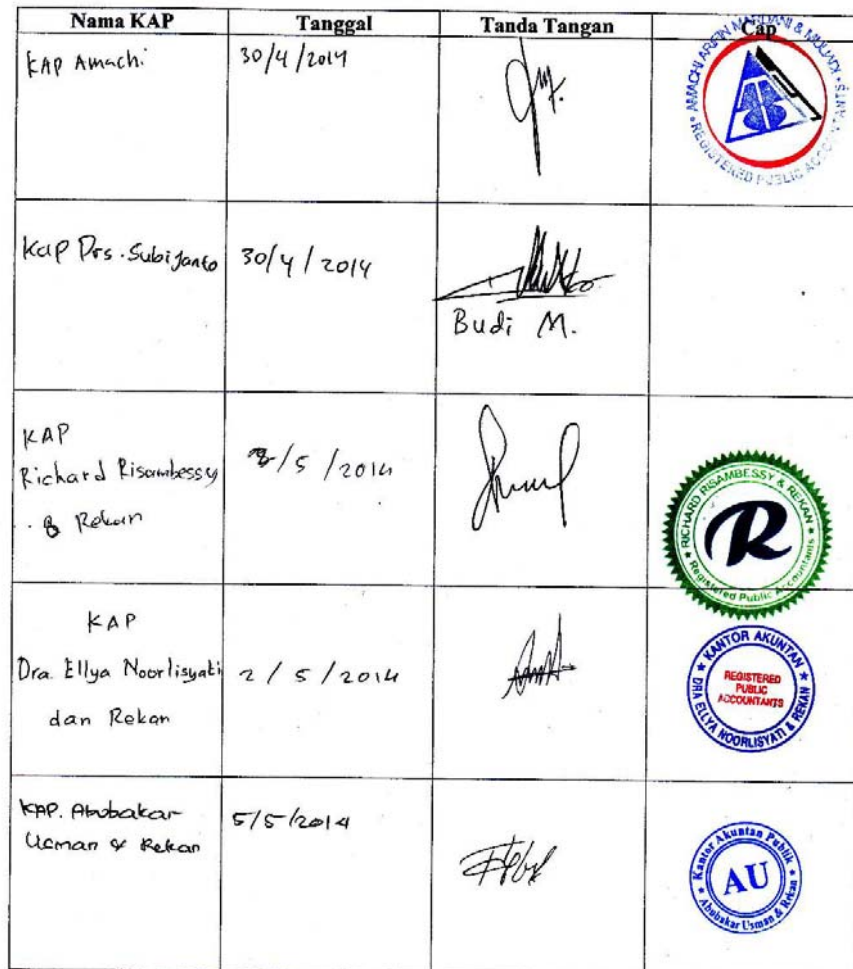 Nama KAP Tanggal Tanda Tangan Cap
KAP Amachi 30/4/2014
AMACHI ARIFIN MARDANI & MULIADI
REGISTERED PUBLIC ACCOUNTANTS
KAP Drs. Subijanto 30/4/2014
Budi M.
KAP
Richard Risambessy
& Rekan
/5/2014
RICHARD RISAMBESSY & REKAN
R
Registered Public Accountants
KAP
Dra. Ellya Noorlisyati 2/5/2014
dan Rekan
KANTOR AKUNTAN
REGISTERED
PUBLIC
ACCOUNTANTS
DRA ELLYA NOORLISYATI & REKAN
KAP. Abubakar 5/5/2014
Usman & Rekan
Kantor Akuntan Publik
AU
Abubakar Usman & Rekan